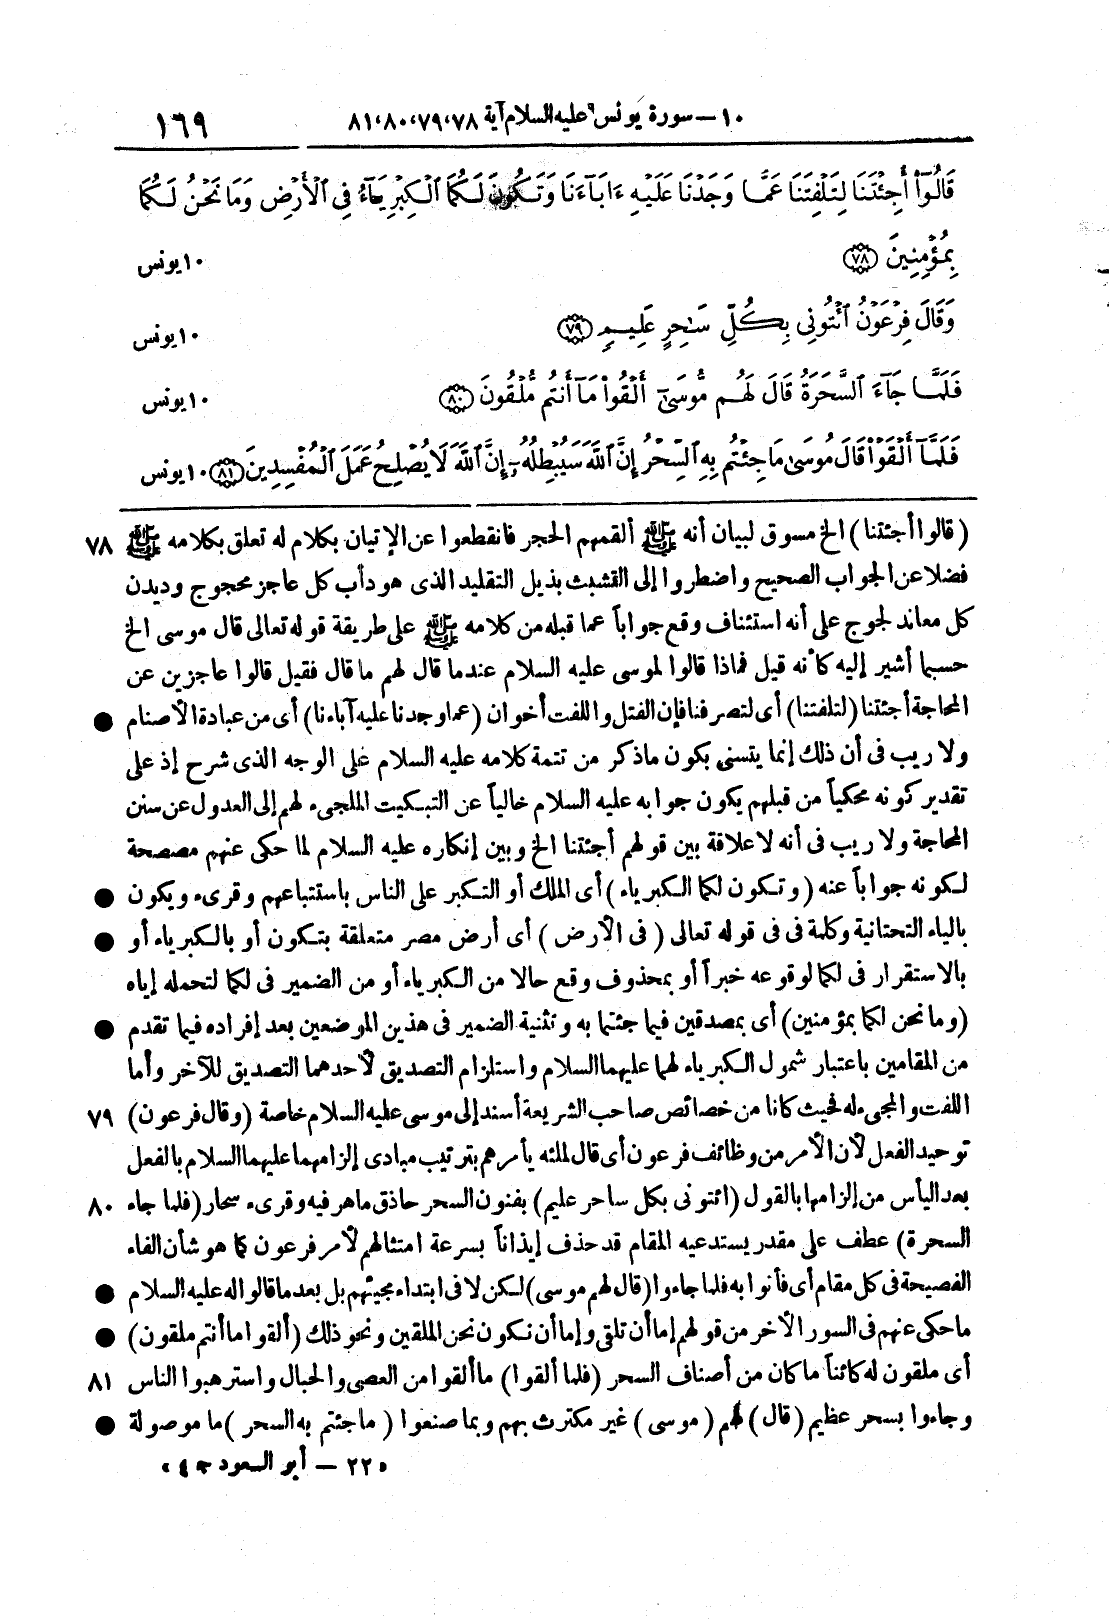 ١٠ – سورة يونس عليه السلام آية ٧٨، ٧٩، ٨٠، ٨١ ١٦٩
قَالُوٓاْ أَجِئْتَنَا لِتَلْفِتَنَا عَمَّا وَجَدْنَا عَلَيْهِ ءَابَآءَنَا وَتَكُونَ لَكُمَا ٱلْكِبْرِيَآءُ فِى ٱلْأَرْضِ وَمَا نَحْنُ لَكُمَا
بِمُؤْمِنِينَ ﴿٧٨﴾ ١٠ يونس
وَقَالَ فِرْعَوْنُ ٱئْتُونِى بِكُلِّ سَٰحِرٍ عَلِيمٍ ﴿٧٩﴾ ١٠ يونس
فَلَمَّا جَآءَ ٱلسَّحَرَةُ قَالَ لَهُم مُّوسَىٰٓ أَلْقُواْ مَآ أَنتُم مُّلْقُونَ ﴿٨٠﴾ ١٠ يونس
فَلَمَّآ أَلْقَوْاْ قَالَ مُوسَىٰ مَا جِئْتُم بِهِ ٱلسِّحْرُ إِنَّ ٱللَّهَ سَيُبْطِلُهُۥٓ إِنَّ ٱللَّهَ لَا يُصْلِحُ عَمَلَ ٱلْمُفْسِدِينَ ﴿٨١﴾ ١٠ يونس
(قالوا أجئتنا) الخ مسوق لبيان أنه ﷺ ألقمهم الحجر فانقطعوا عن الإتيان بكلام له تعلق بكلامه ﷺ ٧٨
فضلا عن الجواب الصحيح واضطروا إلى التشبث بذيل التقليد الذى هو دأب كل عاجز محجوج وديدن
كل معاند لجوج على أنه استئناف وقع جواباً عما قبله من كلامه ﷺ على طريقة قوله تعالى قال موسى الخ
حسبما أشير إليه كأنه قيل فماذا قالوا لموسى عليه السلام عندما قال لهم ما قال فقيل قالوا عاجزين عن
المحاجة أجئتنا (لتلفتنا) أى لتصرفنا فإن الفتل واللفت أخوان (عما وجدنا عليه آباءنا) أى من عبادة الأصنام ●
ولا ريب فى أن ذلك إنما يتسنى بكون ما ذكر من تتمة كلامه عليه السلام على الوجه الذى شرح إذ على
تقدير كونه محكياً من قبلهم يكون جوابه عليه السلام خالياً عن التبكيت الملجىء لهم إلى العدول عن سنن
المحاجة ولا ريب فى أنه لا علاقة بين قولهم أجئتنا الخ وبين إنكاره عليه السلام لما حكى عنهم مصححة
لكونه جواباً عنه (وتكون لكما الكبرياء) أى الملك أو التكبر على الناس باستتباعهم وقرىء ويكون ●
بالياء التحتانية وكلمة فى فى قوله تعالى (فى الأرض) أى أرض مصر متعلقة بتكون أو بالكبرياء أو ●
بالاستقرار فى لكما لوقوعه خبراً أو بمحذوف وقع حالا من الكبرياء أو من الضمير فى لكما لتحمله إياه
(وما نحن لكما بمؤمنين) أى بمصدقين فيما جئتما به وتثنية الضمير فى هذين الموضعين بعد إفراده فيما تقدم ●
من المقامين باعتبار شمول الكبرياء لهما عليهما السلام واستلزام التصديق لأحدهما التصديق للآخر وأما
اللفت والمجىء له فحيث كانا من خصائص صاحب الشريعة أسند إلى موسى عليه السلام خاصة (وقال فرعون) ٧٩
توحيد الفعل لأن الأمر من وظائف فرعون أى قال لملئه يأمرهم بترتيب مبادى إلزامهما عليهما السلام بالفعل
بعد اليأس من إلزامهما بالقول (ائتونى بكل ساحر عليم) بفنون السحر حاذق ماهر فيه وقرىء سحار (فلما جاء ٨٠
السحرة) عطف على مقدر يستدعيه المقام قد حذف إيذاناً بسرعة امتثالهم لأمر فرعون كما هو شأن الفاء
الفصيحة فى كل مقام أى فأتوا به فلما جاءوا (قال لهم موسى) لكن لا فى ابتداء مجيئهم بل بعد ما قالوا له عليه السلام ●
ما حكى عنهم فى السور الأخر من قولهم إما أن تلقى وإما أن نكون نحن الملقين ونحو ذلك (ألقوا ما أنتم ملقون) ●
أى ملقون له كائناً ما كان من أصناف السحر (فلما ألقوا) ما ألقوا من العصى والحبال واسترهبوا الناس ٨١
وجاءوا بسحر عظيم (قال) لهم (موسى) غير مكترث بهم وبما صنعوا (ما جئتم به السحر) ما موصولة ●
«٢٢ – أبو السعود جـ ٤»